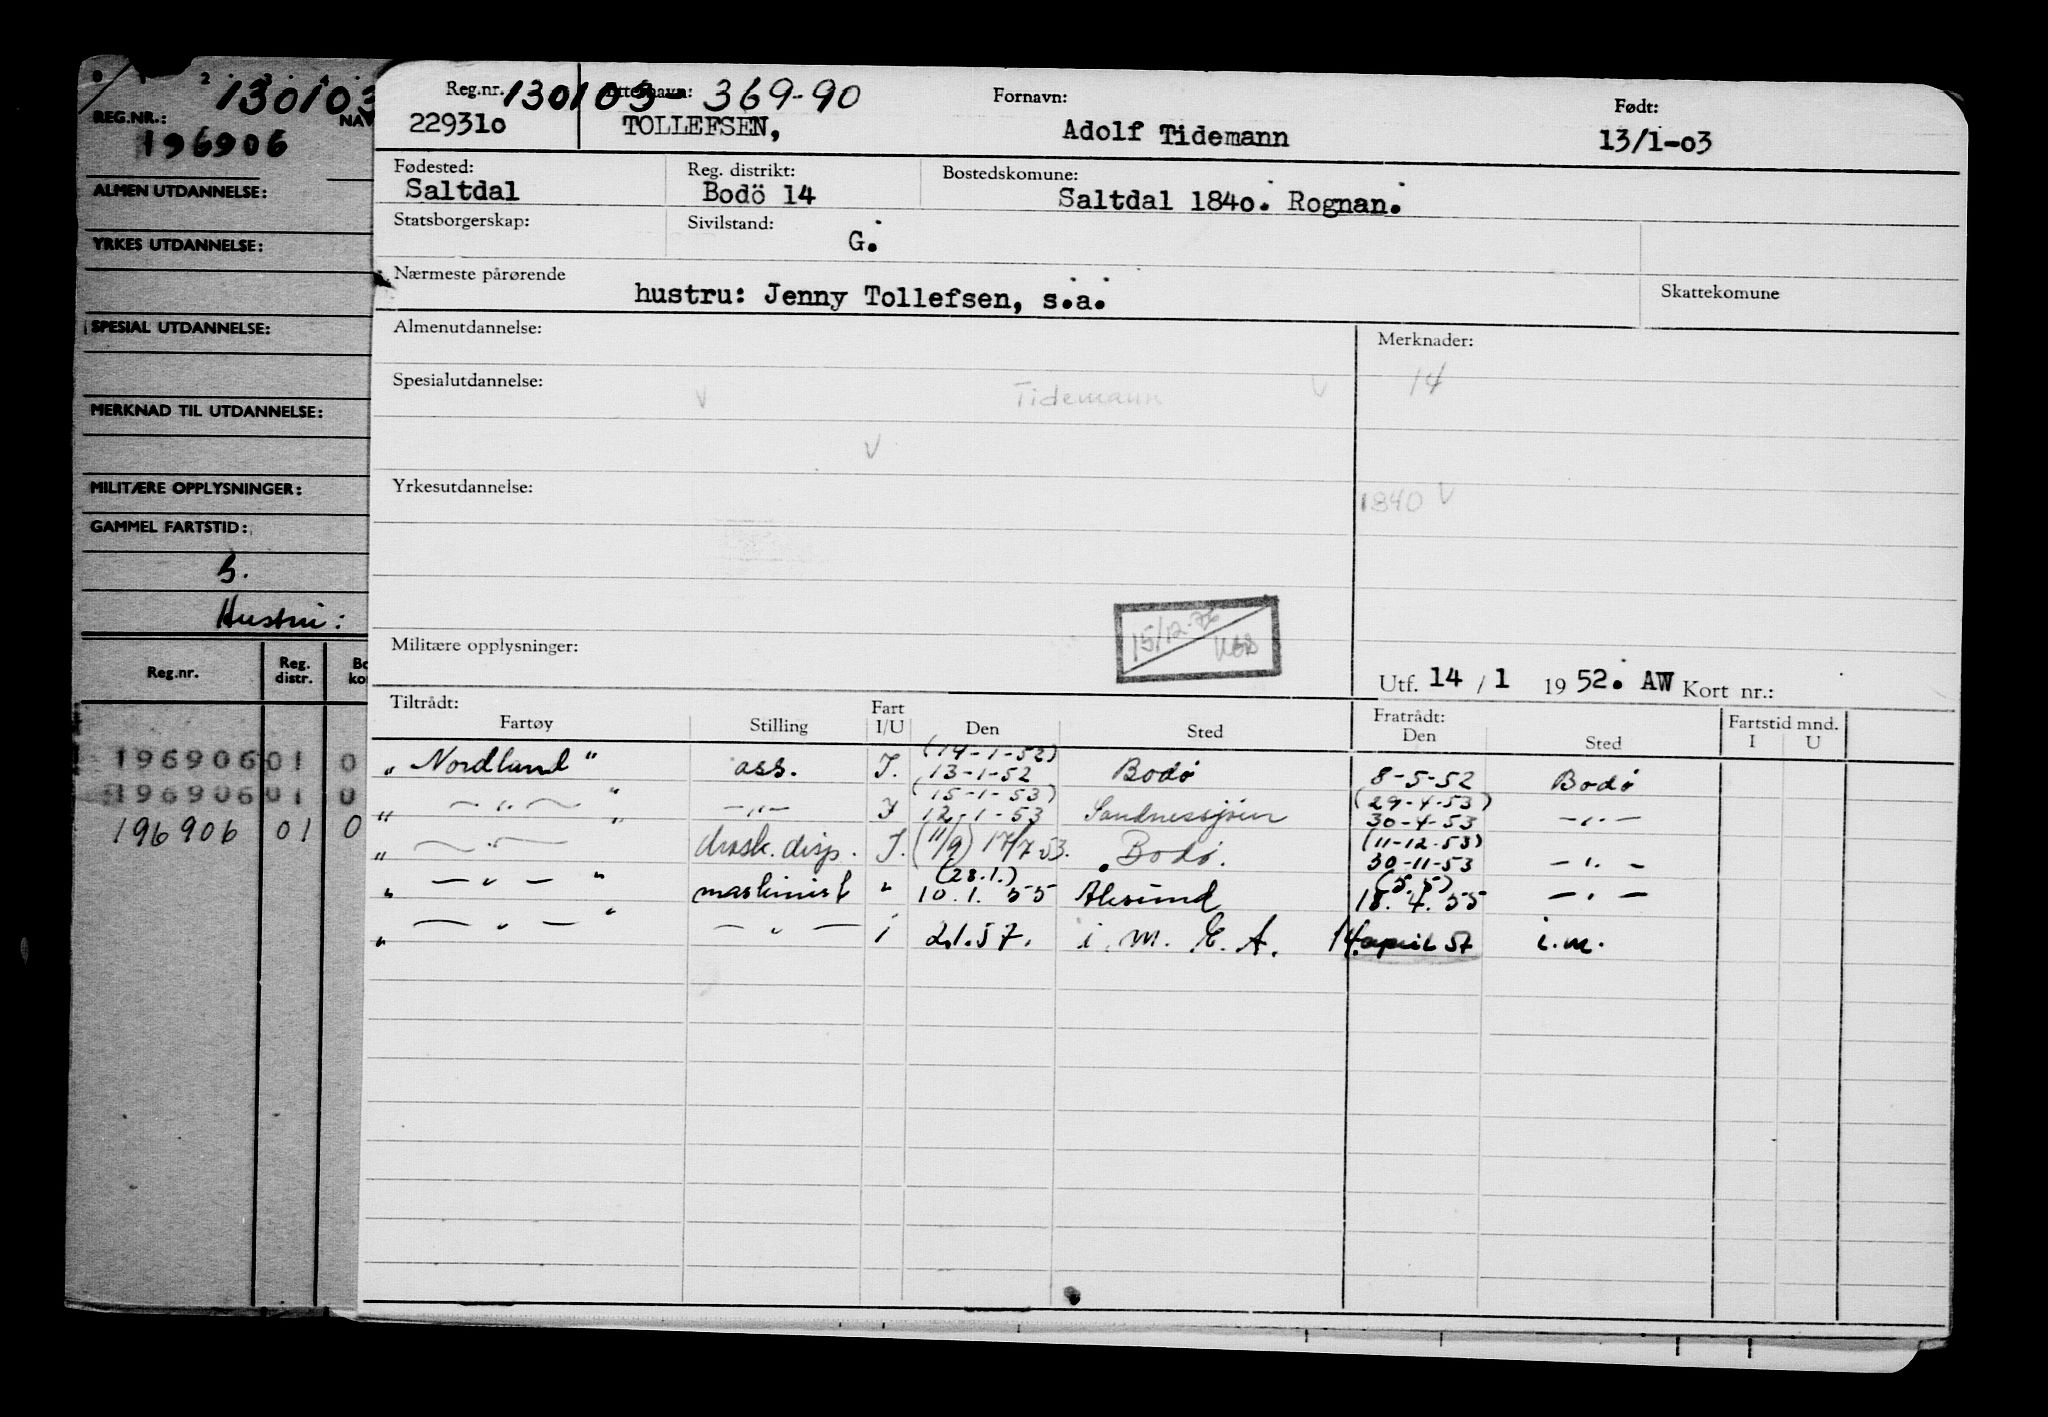 0 1 2 3 4
130103
REG.NR.: NAV
196906
ALMEN UTDANNELSE:
YRKES UTDANNELSE:
SPESIAL UTDANNELSE:
MERKNAD TIL UTDANNELSE:
MILITÆRE OPPLYSNINGER:
GAMMEL FARTSTID:
Hustru:
Reg.nr. Reg. distr. Bo ko
196906 01 0
196906 01 0
196906 01 0
Reg.nr. 130103- 369-90 Etternavn: Fornavn: Født:
229310 TOLLEFSEN, Adolf Tidemann 13/1-03
Fødested: Reg. distrikt: Bostedskomune:
Saltdal Bodö 14 Saltdal 1840. Rognan.
Statsborgerskap: Sivilstand:
G.
Nærmeste pårørende Skattekomune
hustru: Jenny Tollefsen, s.a.
Almenutdannelse: Merknader:
Spesialutdannelse: V Tidemann V 14
V
Yrkesutdannelse: 1840 V
15/12-76
Militære opplysninger:
Utf. 14 / 1 1952. AW Kort nr.:
Tiltrådt: Fart Fratrådt: Fartstid mnd.
Fartøy Stilling I/U Den Sted Den Sted I U
(14-1-52)
„ Nordland " ass. I. 13-1-52 Bodø 8-5-52 Bodø
(15-1-53) (29-4-53)
„ — „ — " — „ — I 12-1-53 Sandnessjøen 30-4-53 — „ —
(11-12-53)
„ — „ — mask. disp. I. (11/9) 17/7 53. Bodø. 30-11-53 — „ —
(28.1.) (5.5)
„ — „ — " maskinist " 10.1. 55 Ålesund 18. 4. 55 — „ —
„ — „ — " — „ — i 2.1.57. i. m. E. A. 14 april 57 i.m.